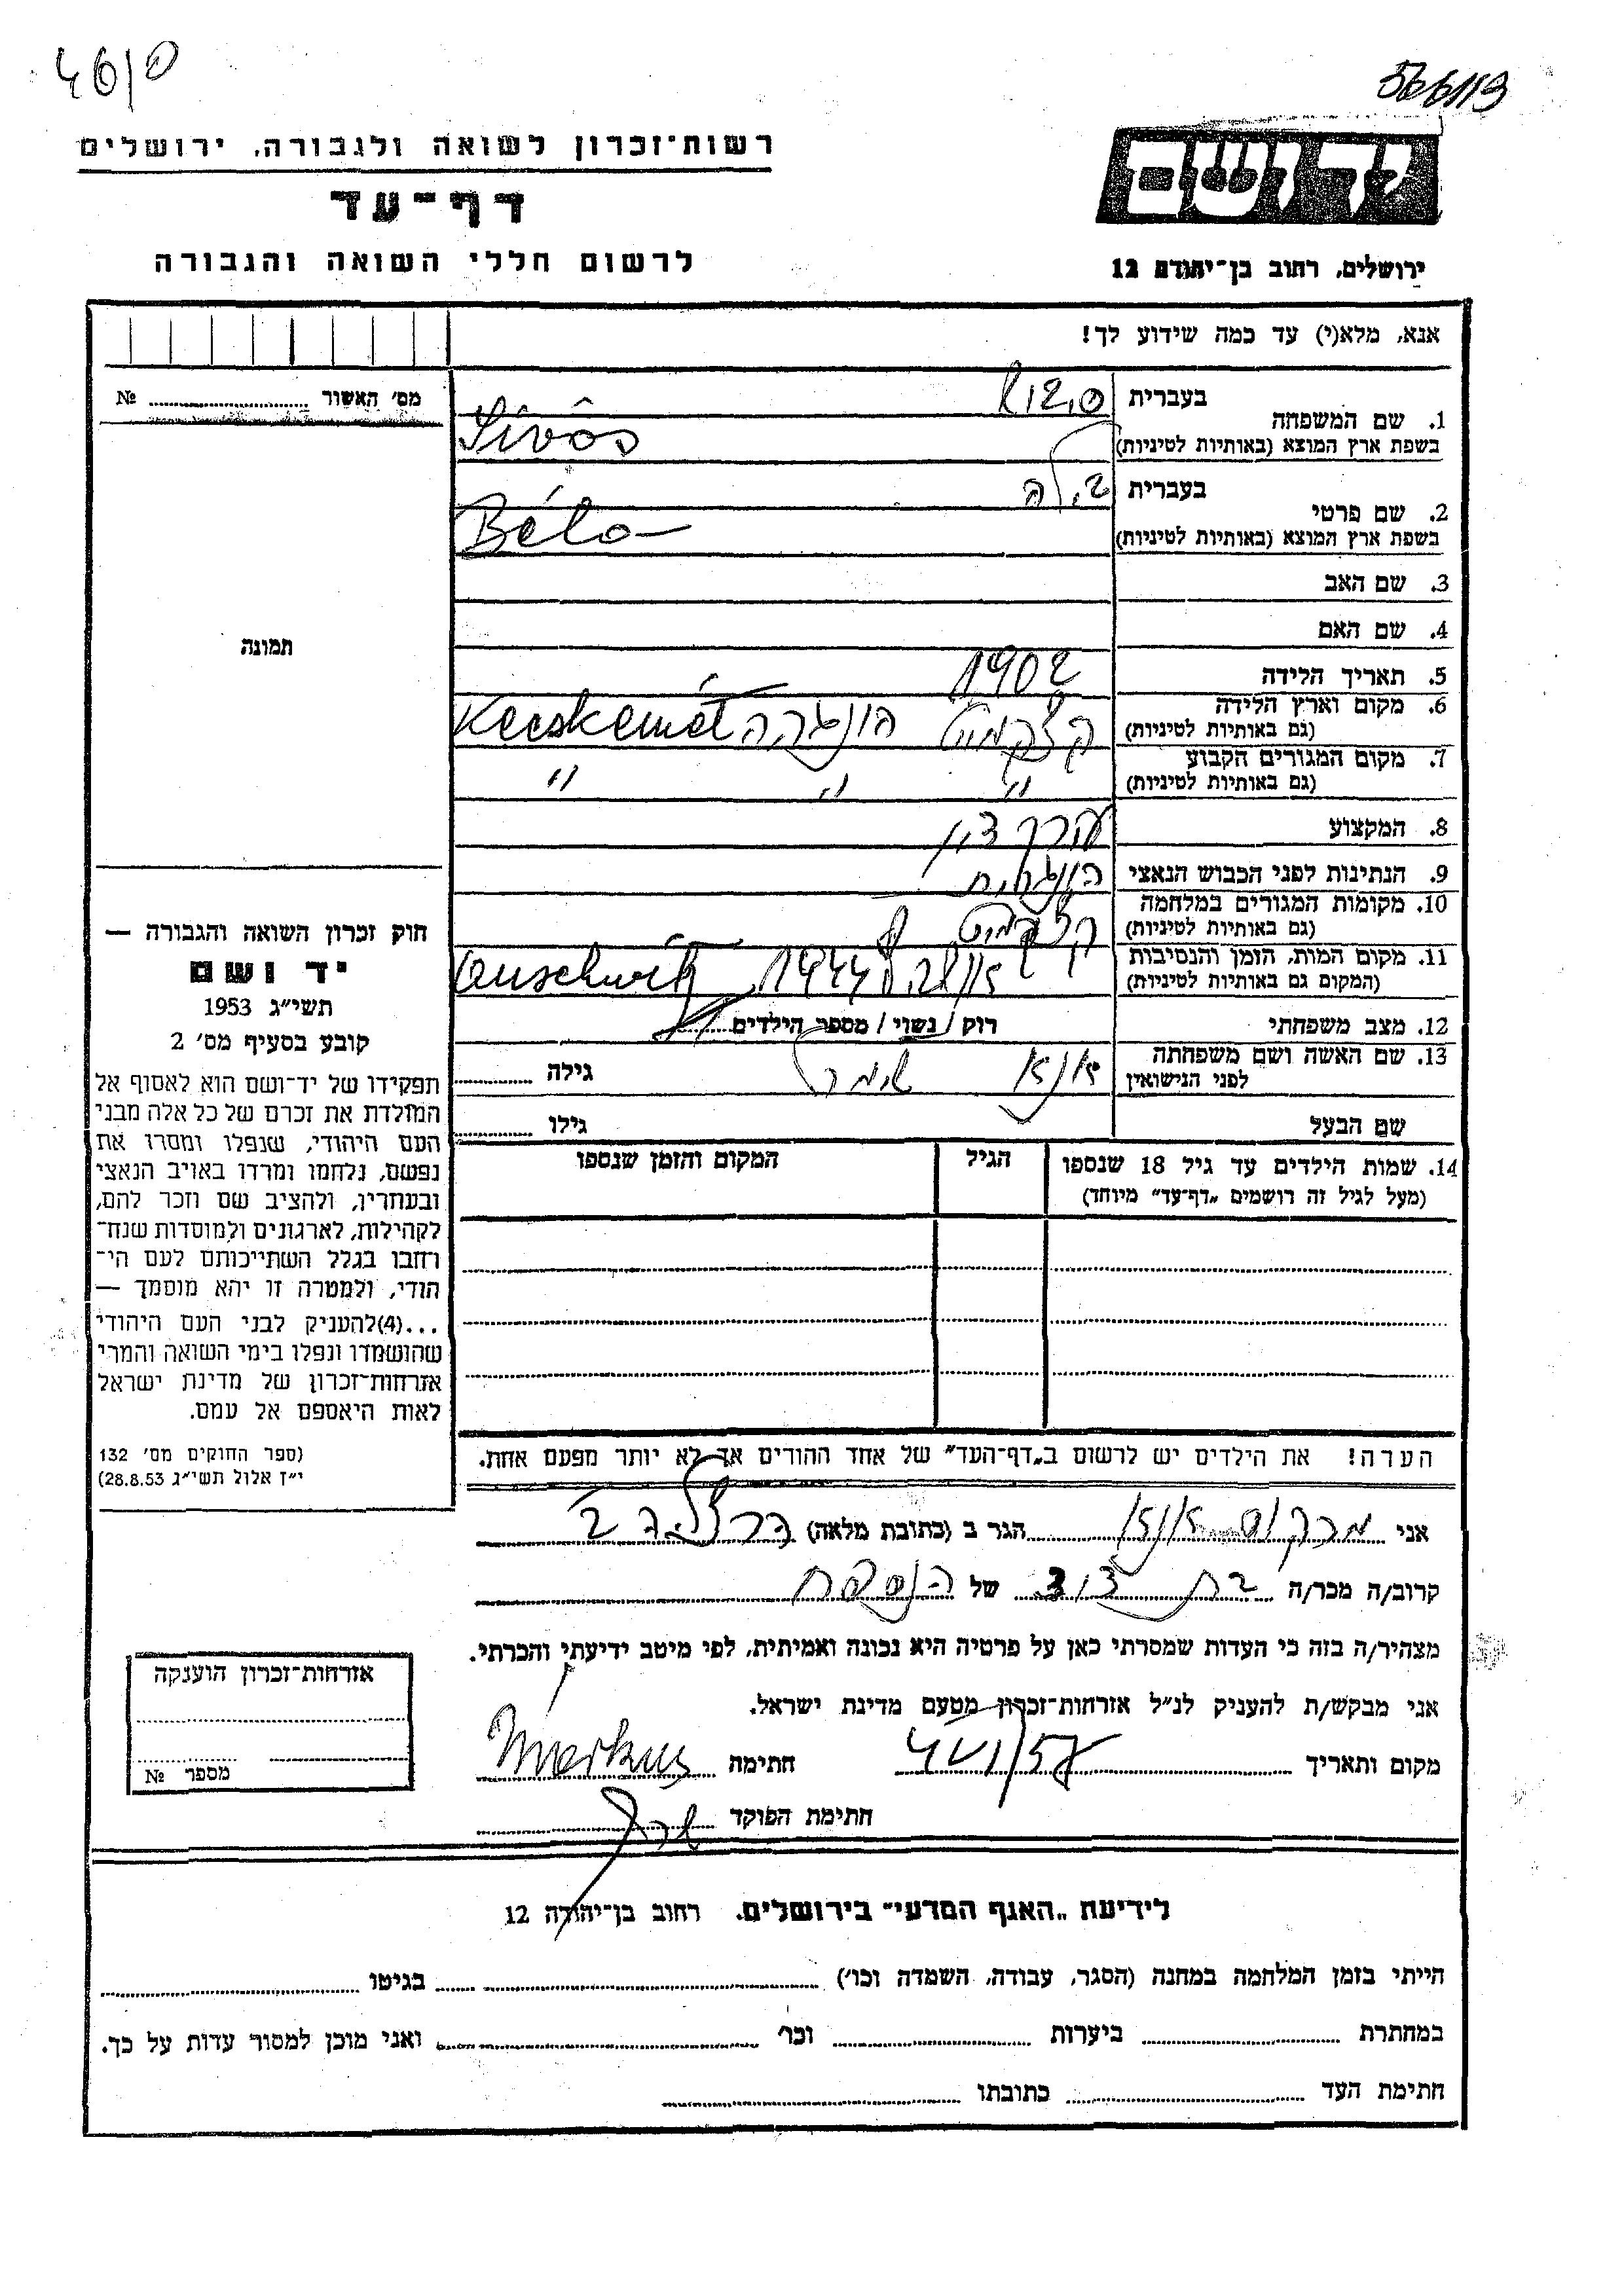 46/0
566/19
רשות־זכרון לשואה ולגבורה, ירושלים
דף־עד
לרשום חללי השואה והגבורה
ירושלים, רחוב בן־יהודה 12
אנא, מלא(י) עד כמה שידוע לך!
מס׳ האשור № 
1. שם המשפחה
בעברית
בשפת ארץ המוצא (באותיות לטיניות)
2. שם פרטי
בעברית בילה
בשפת ארץ המוצא (באותיות לטיניות) Béla
3. שם האב
4. שם האם
5. תאריך הלידה 1902
6. מקום וארץ הלידה
(גם באותיות לטיניות) קצקמט הונגריה Kecskemét
7. מקום המגורים הקבוע
(גם באותיות לטיניות) " " "
8. המקצוע עורך דין
9. הנתינות לפני הכבוש הנאצי הונגרית
10. מקומות המגורים במלחמה
(גם באותיות לטיניות) קצקמט
11. מקום המות, הזמן והנסיבות
(המקום גם באותיות לטיניות) 1944 Auschwitz
12. מצב משפחתי רוק / נשוי / מספר הילדים
13. שם האשה ושם משפחתה
לפני הנישואין גילה
שם הבעל גילו
14. שמות הילדים עד גיל 18 שנספו
(מעל לגיל זה רושמים „דף־עד״ מיוחד)
הגיל
המקום והזמן שנספו
תמונה
חוק זכרון השואה והגבורה —
יד ושם
תשי״ג 1953
קובע בסעיף מס׳ 2
תפקידו של יד־ושם הוא לאסוף אל
המולדת את זכרם של כל אלה מבני
העם היהודי, שנפלו ומסרו את
נפשם, נלחמו ומרדו באויב הנאצי
ובעוזריו, ולהציב שם וזכר להם,
לקהילות, לארגונים ולמוסדות שנח־
רבו בגלל השתייכותם לעם הי־
הודי, ולמטרה זו יהא מוסמך —
...(4)להעניק לבני העם היהודי
שהושמדו ונפלו בימי השואה והמרי
אזרחות־זכרון של מדינת ישראל
לאות היאספם אל עמם.
(ספר החוקים מס׳ 132
י״ז אלול תשי״ג 28.8.53)
הערה! את הילדים יש לרשום ב„דף־העד״ של אחד ההורים אך לא יותר מפעם אחת.
אני מרקוס הגר ב (כתובת מלאה) הרצליה ב
קרוב/ה מכר/ה בת דוד של הנספה
מצהיר/ה בזה כי העדות שמסרתי כאן על פרטיה היא נכונה ואמיתית, לפי מיטב ידיעתי והכרתי.
אני מבקש/ת להעניק לנ״ל אזרחות־זכרון מטעם מדינת ישראל.
מקום ותאריך חתימה Markus
חתימת הפוקד
אזרחות־זכרון הוענקה
מספר №
לידיעת „האגף המדעי״ בירושלים. רחוב בן־יהודה 12
הייתי בזמן המלחמה במחנה (הסגר, עבודה, השמדה וכו׳) בגיטו
במחתרת ביערות וכו׳ ואני מוכן למסור עדות על כך.
חתימת העד כתובתו